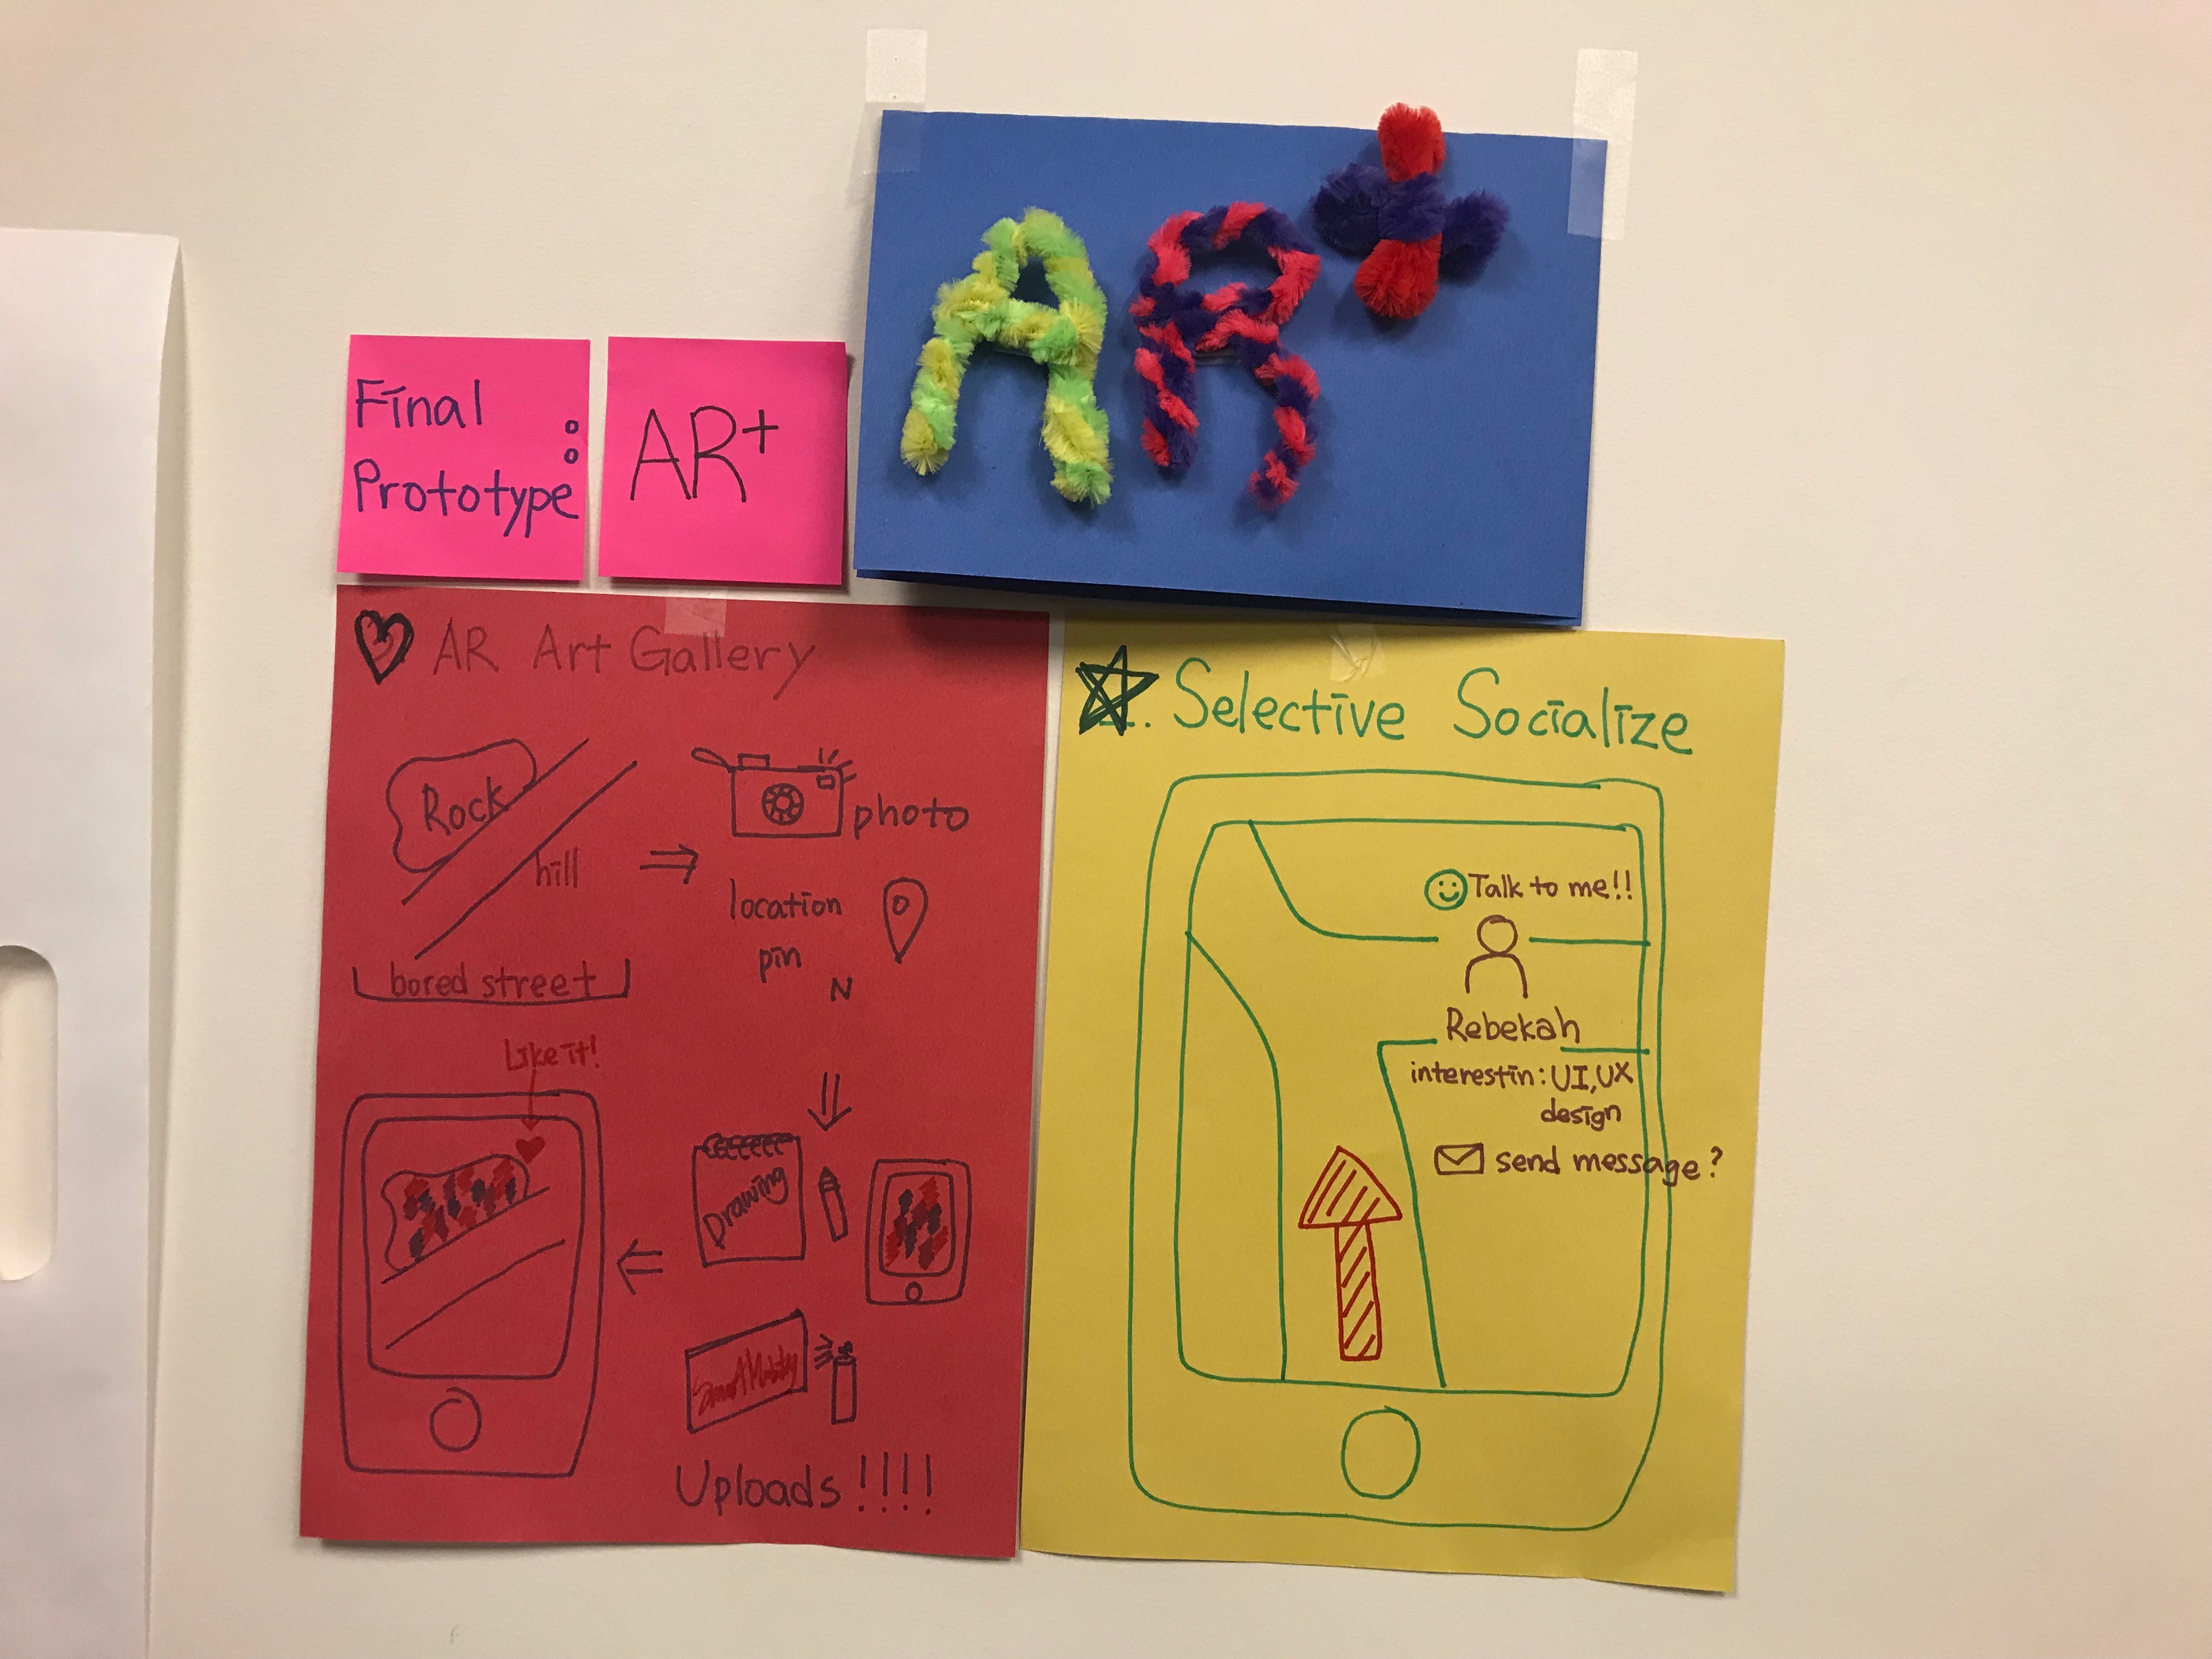 Final
Prototype:
AR+
AR+
AR Art Gallery
Rock
hill
bored street
photo
location
pin
N
Drawing
Uploads!!!!
Like it!
Selective Socialize
Talk to me!!
Rebekah
interestin: UI, UX
design
send message?